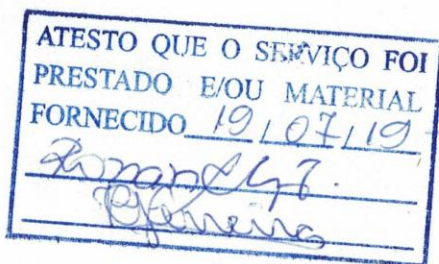 ATESTO QUE O SERVIÇO FOI
PRESTADO E/OU MATERIAL
FORNECIDO 19/07/19